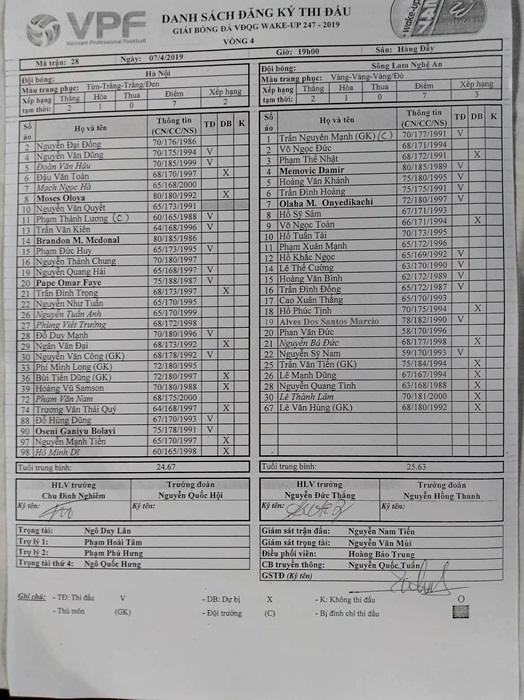 VPF
Vietnam Professional Football
DANH SÁCH ĐĂNG KÝ THI ĐẤU
GIẢI BÓNG ĐÁ VĐQG WAKE-UP 247 - 2019
VÒNG 4
Mã trận: 28 Ngày: 07/4/2019 Giờ: 19h00 Sân: Hàng Đẫy
Đội bóng: Hà Nội
Màu trang phục: Tím-Trắng-Trắng/Đen
Xếp hạng tạm thời: Thắng Hòa Thua Điểm Xếp hạng
2 1 0 7 2
Số áo Họ và tên Thông tin (CN/CC/NS) TĐ DB K
2 Nguyễn Đại Đồng 70/176/1986
4 Nguyễn Văn Dũng 70/175/1994 V
5 Đoàn Văn Hậu 70/185/1999 V
6 Đậu Văn Toàn 68/170/1997 X
7 Mạch Ngọc Hà 65/168/2000
8 Moses Oloya 80/180/1992 X
10 Nguyễn Văn Quyết 65/173/1991
11 Phạm Thành Lương (C) 60/165/1988 V
13 Trần Văn Kiên 64/168/1996 V
14 Brandon M. Mcdonal 80/185/1986
15 Phạm Đức Huy 65/173/1995 V
16 Nguyễn Thành Chung 70/180/1997
19 Nguyễn Quang Hải 65/168/1997 V
20 Pape Omar Faye 75/188/1987 V
21 Trần Đình Trọng 68/173/1997 X
22 Nguyễn Như Tuấn 65/170/1995
26 Nguyễn Tuấn Anh 65/170/1999
27 Phùng Viết Trường 68/172/1998
28 Đỗ Duy Mạnh 70/180/1996 V
29 Ngân Văn Đại 68/173/1992 X
30 Nguyễn Văn Công (GK) 68/178/1992 V
33 Phí Minh Long (GK) 72/180/1995
36 Bùi Tiến Dũng (GK) 72/180/1997 X
39 Hoàng Vũ Samson 70/180/1988 X
72 Phạm Văn Nam 68/175/2000
74 Trương Văn Thái Quý 64/168/1997 X
88 Đỗ Hùng Dũng 67/170/1993 V
90 Oseni Ganiyu Bolayi 75/178/1991 V
97 Nguyễn Mạnh Tiến 65/170/1997 X
98 Hồ Minh Dĩ 60/165/1998 X
Tuổi trung bình: 24.67
HLV trưởng Trưởng đoàn
Chu Đình Nghiêm Nguyễn Quốc Hội
Ký tên: Ký tên:
Đội bóng: Sông Lam Nghệ An
Màu trang phục: Vàng-Vàng-Vàng/Đỏ
Xếp hạng tạm thời: Thắng Hòa Thua Điểm Xếp hạng
2 1 0 7 3
Số áo Họ và tên Thông tin (CN/CC/NS) TĐ DB K
1 Trần Nguyên Mạnh (GK) (C) 70/177/1991 V
2 Võ Ngọc Đức 68/171/1994
3 Phạm Thế Nhật 68/172/1991 X
4 Memovic Damir 80/185/1989 V
5 Hoàng Văn Khánh 75/180/1995 V
6 Trần Đình Hoàng 75/175/1991 V
7 Olaha M. Onyedikachi 72/180/1997 V
8 Hồ Sỹ Sâm 67/171/1993
9 Võ Ngọc Toàn 66/171/1994 X
10 Hồ Tuấn Tài 70/173/1995
11 Phạm Xuân Mạnh 65/172/1996
12 Hồ Khắc Ngọc 65/169/1992 V
14 Lê Thế Cường 63/170/1990 V
15 Hoàng Văn Bình 62/172/1989 V
16 Trần Đình Đồng 65/172/1987 V
17 Cao Xuân Thắng 65/170/1993
18 Hồ Phúc Tịnh 70/175/1994 X
19 Alves Dos Santos Marcio 78/182/1990 V
20 Phan Văn Đức 58/170/1996
21 Nguyễn Bá Đức 68/177/1998 X
22 Nguyễn Sỹ Nam 59/170/1993 V
25 Trần Văn Tiến (GK) 75/184/1994 X
26 Lê Mạnh Dũng 67/167/1994 X
28 Nguyễn Quang Tình 63/168/1988 X
30 Lê Thành Lâm 70/181/2000 X
67 Lê Văn Hùng (GK) 68/180/1992 X
Tuổi trung bình: 25.63
HLV trưởng Trưởng đoàn
Nguyễn Đức Thắng Nguyễn Hồng Thanh
Ký tên: Ký tên:
Trọng tài: Ngô Duy Lân
Trợ lý 1: Phạm Hoài Tâm
Trợ lý 2: Phạm Phú Hưng
Trọng tài thứ 4: Ngô Quốc Hưng
Giám sát trận đấu: Nguyễn Nam Tiến
Giám sát trọng tài: Nguyễn Văn Mùi
Điều phối viên: Hoàng Bảo Trung
CB truyền thông: Nguyễn Quốc Tuấn
GSTĐ (Ký tên)
Ghi chú: - TĐ: Thi đấu V - DB: Dự bị X - K: Không thi đấu O
- Thủ môn (GK) - Đội trưởng (C) - Bị đình chỉ thi đấu